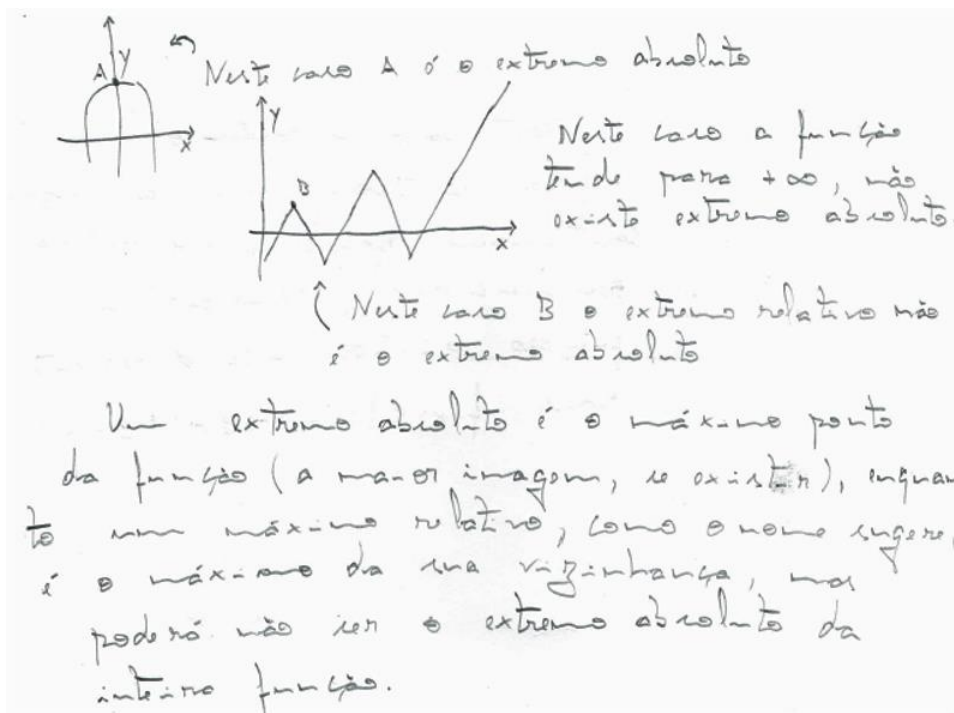 A y
x
Neste caso A é o extremo absoluto
y
B
x
Neste caso a função
tende para +∞, não
existe extremo absoluto.
Neste caso B o extremo relativo não
é o extremo absoluto
Um extremo absoluto é o máximo ponto
da função (a maior imagem, se existir), enquan
to um máximo relativo, como o nome sugere,
é o máximo da sua vizinhança, mas
poderá não ser o extremo absoluto da
inteira função.